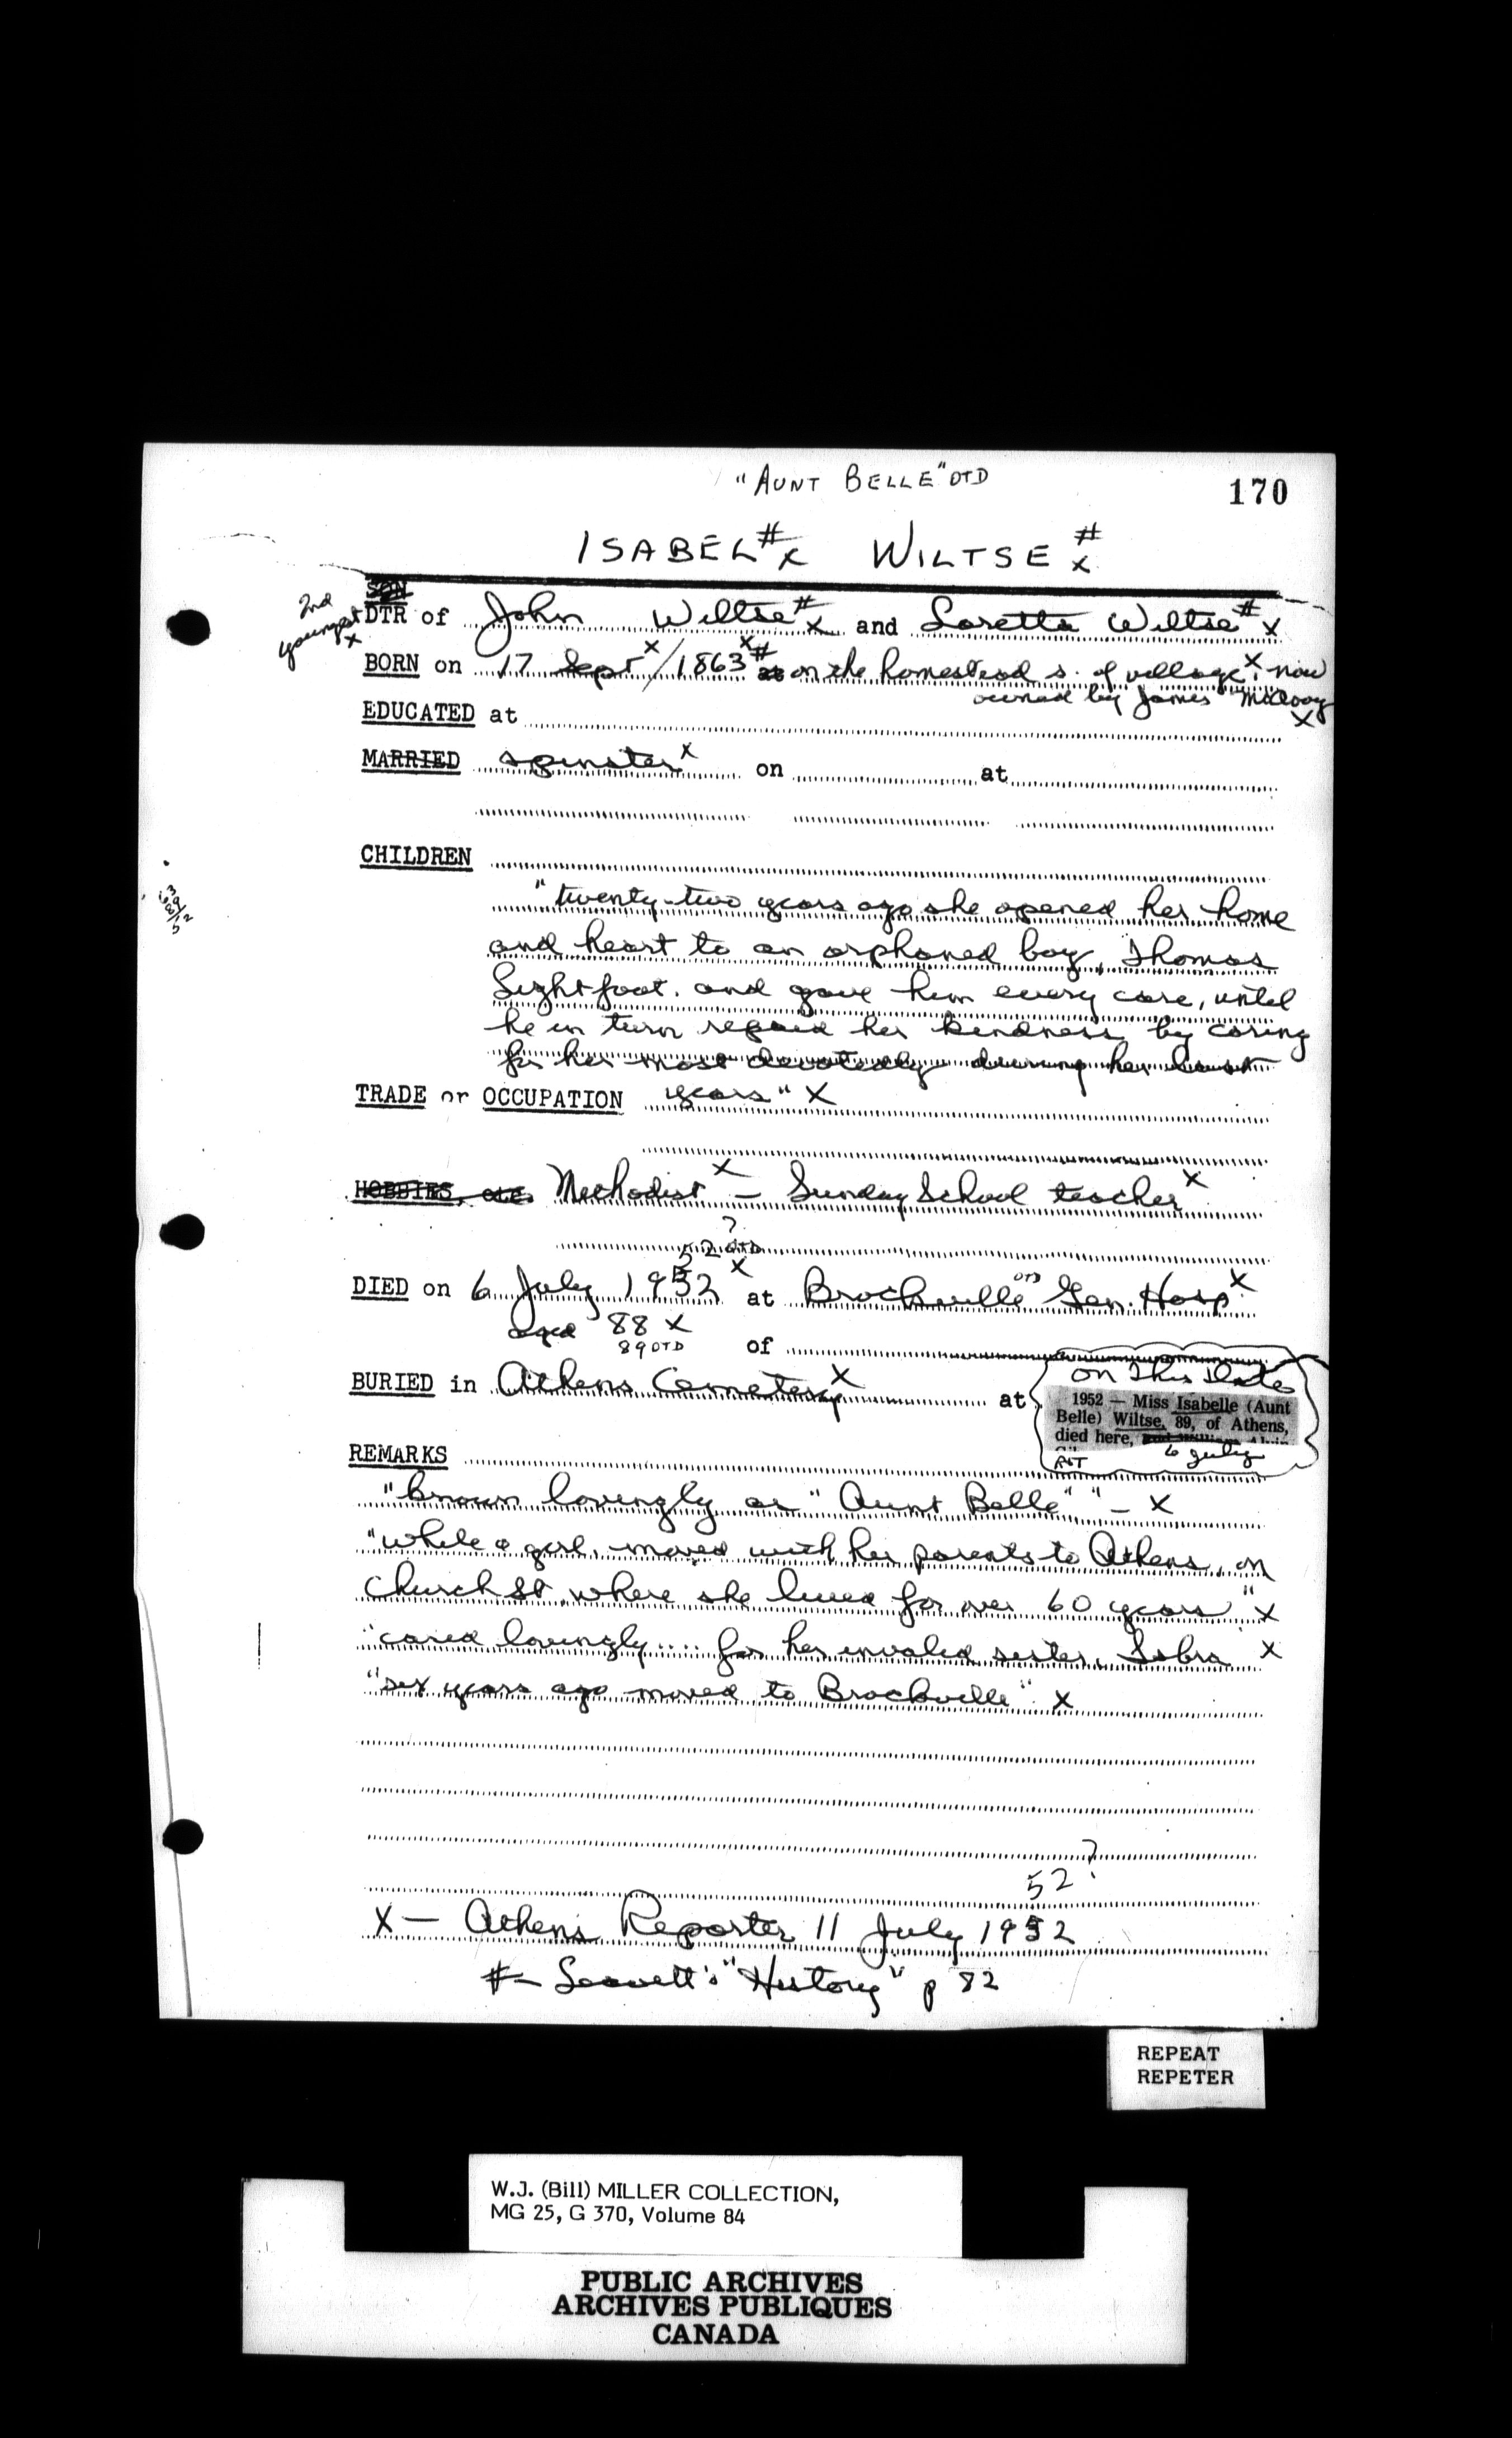 "AUNT BELLE" OTD
170
ISABEL # x WILTSE # x
SON
2nd youngest x
DTR of John Wiltse # x and Loretta Wiltse # x
BORN on 17 Sept x / 1863 x # on the homestead s. of village, x now
owned by James
x
EDUCATED at
MARRIED spinster x on at
CHILDREN
"twenty-two years ago she opened her home
and heart to an orphaned boy, Thomas
Lightfoot. and gave him every care, until
he in turn repaid her kindness by caring
for her most devotedly during her last
TRADE or OCCUPATION years" x
HOBBIES, etc. Methodist x - Sunday School teacher x
?
52 OTD
DIED on 6 July 1952 x at Brockville OTD Gen. Hosp x
aged 88 x
89 OTD of
BURIED in Athens Cemetery x at
On This Date
1952 — Miss Isabelle (Aunt
Belle) Wiltse, 89, of Athens,
died here,
6 July
R&T
REMARKS
"known lovingly as "Aunt Belle" " - x
"while a girl, moved with her parents to Athens, on
Church St. where she lived for over 60 years" x
"cared lovingly.... for her invalid sister, Sabra x
"six years ago moved to Brockville". x
52 ?
X — Athens Reporter 11 July 1952
# — Leavitt's "History" p 82
REPEAT
REPETER
W.J. (Bill) MILLER COLLECTION,
MG 25, G 370, Volume 84
PUBLIC ARCHIVES
ARCHIVES PUBLIQUES
CANADA